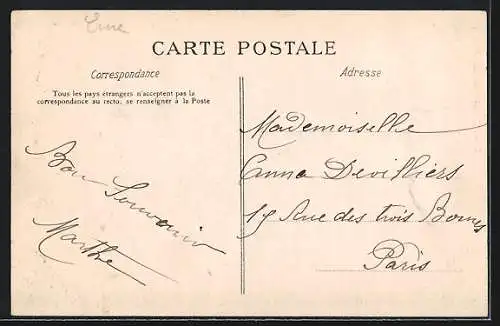 Eure
CARTE POSTALE
Correspondance
Tous les pays étrangers n'acceptent pas la
correspondance au recto, se renseigner à la Poste
Bon Souvenir
Marthe
Adresse
Mademoiselle
Anna Devilliers
15 Rue des trois Bornes
Paris